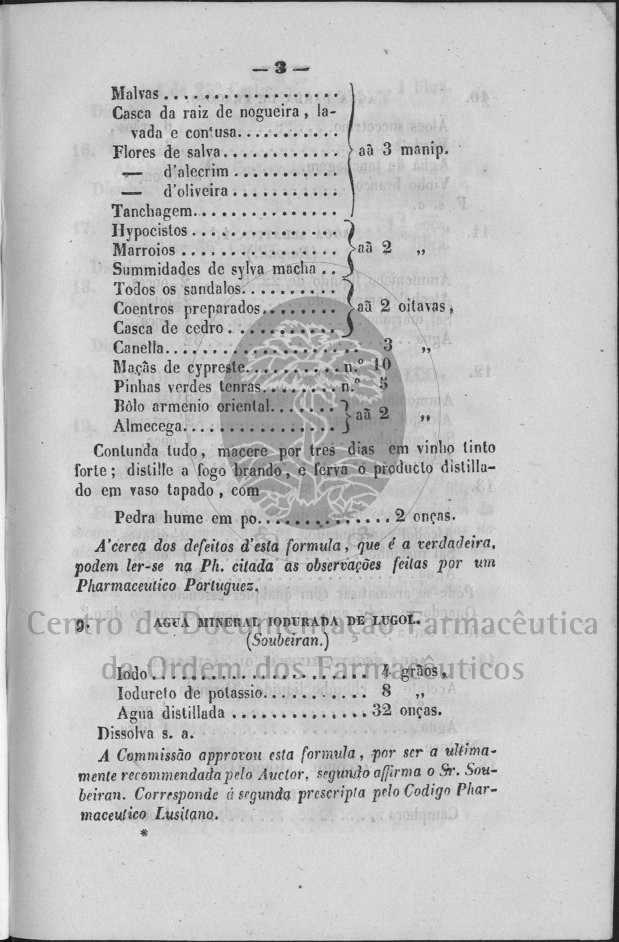 — 3 —
Malvas . . . . . . . . . . . . . . . . . .
Casca da raiz de nogueira, la-
vada e contusa. . . . . . . . . . .
Flores de salva. . . . . . . . . . . . aã 3 manip.
— d'alecrim . . . . . . . . . . .
— d'oliveira . . . . . . . . . . .
Tanchagem. . . . . . . . . . . . . . .
Hypocistos . . . . . . . . . . . . . . .
Marroios . . . . . . . . . . . . . . . . aã 2 „
Summidades de sylva macha . .
Todos os sandalos. . . . . . . . . .
Coentros preparados. . . . . . . . aã 2 oitavas,
Casca de cedro . . . . . . . . . . .
Canella. . . . . . . . . . . . . . . . . . . . 3 „
Maçãs de cypreste. . . . . . . . . . n.º 10
Pinhas verdes tenras. . . . . . . . n.º 5
Bôlo armenio oriental. . . . . . .
aã 2 „
Almecega. . . . . . . . . . . . . . . .
Contunda tudo, macere por tres dias em vinho tinto
forte; distille a fogo brando, e ferva o producto distilla-
do em vaso tapado, com
Pedra hume em po. . . . . . . . . . . . . . 2 onças.
A'cerca dos defeitos d'esta formula, que é a verdadeira,
podem ler-se na Ph. citada as observações feitas por um
Pharmaceutico Portuguez.
9. AGUA MINERAL IODURADA DE LUGOL.
(Soubeiran.)
Iodo . . . . . . . . . . . . . . . . . . . . . . . 4 grãos,
Iodureto de potassio. . . . . . . . . . . . 8 „
Agua distillada . . . . . . . . . . . . . . 32 onças.
Dissolva s. a.
A Commissão approvou esta formula, por ser a ultima-
mente recommendada pelo Auctor, segundo affirma o Sr. Sou-
beiran. Corresponde á segunda prescripta pelo Codigo Phar-
maceutico Lusitano.
*
Centro de Documentação Farmacêutica
da Ordem dos Farmacêuticos